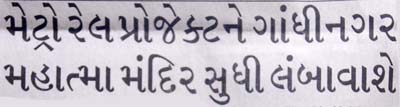 મેટ્રો રેલ પ્રોજેક્ટને ગાંધીનગર
મહાત્મા મંદિર સુધી લંબાવાશે